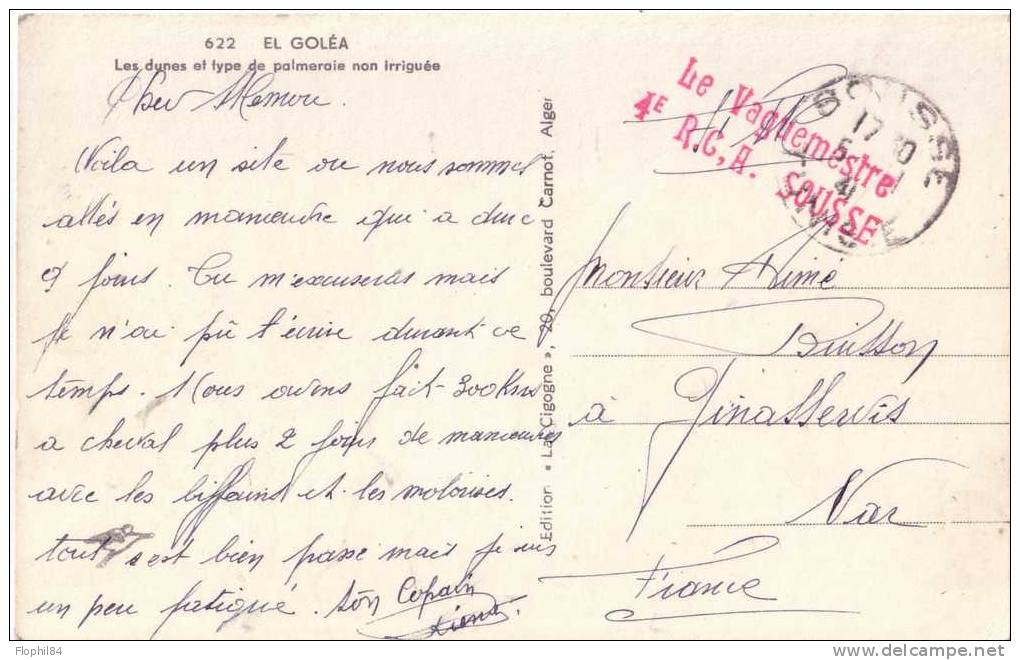 622 EL GOLÉA
Les dunes et type de palmeraie non irriguée
Cher
Voila un site ou nous sommes
allés en manœuvre qui a duré
9 jours. Tu m'excuseras mais
je n'ai pû t'écrire durant ce
temps. Nous avons fait 300 Kms
a cheval plus 2 jours de manœuvres
avec les biffains et les motorisés.
tout s'est bien passé mais je suis
un peu fatigué. ton Copain
Edition « La Cigogne », 20, boulevard Carnot, Alger
Le Vaguemestre
4E R.C.A. SOUSSE
SOUSSE
17 30
5
41
Monsieur Aimé
Buisson
à Ginasservis
Var
France
Flophil84
delcampe.net